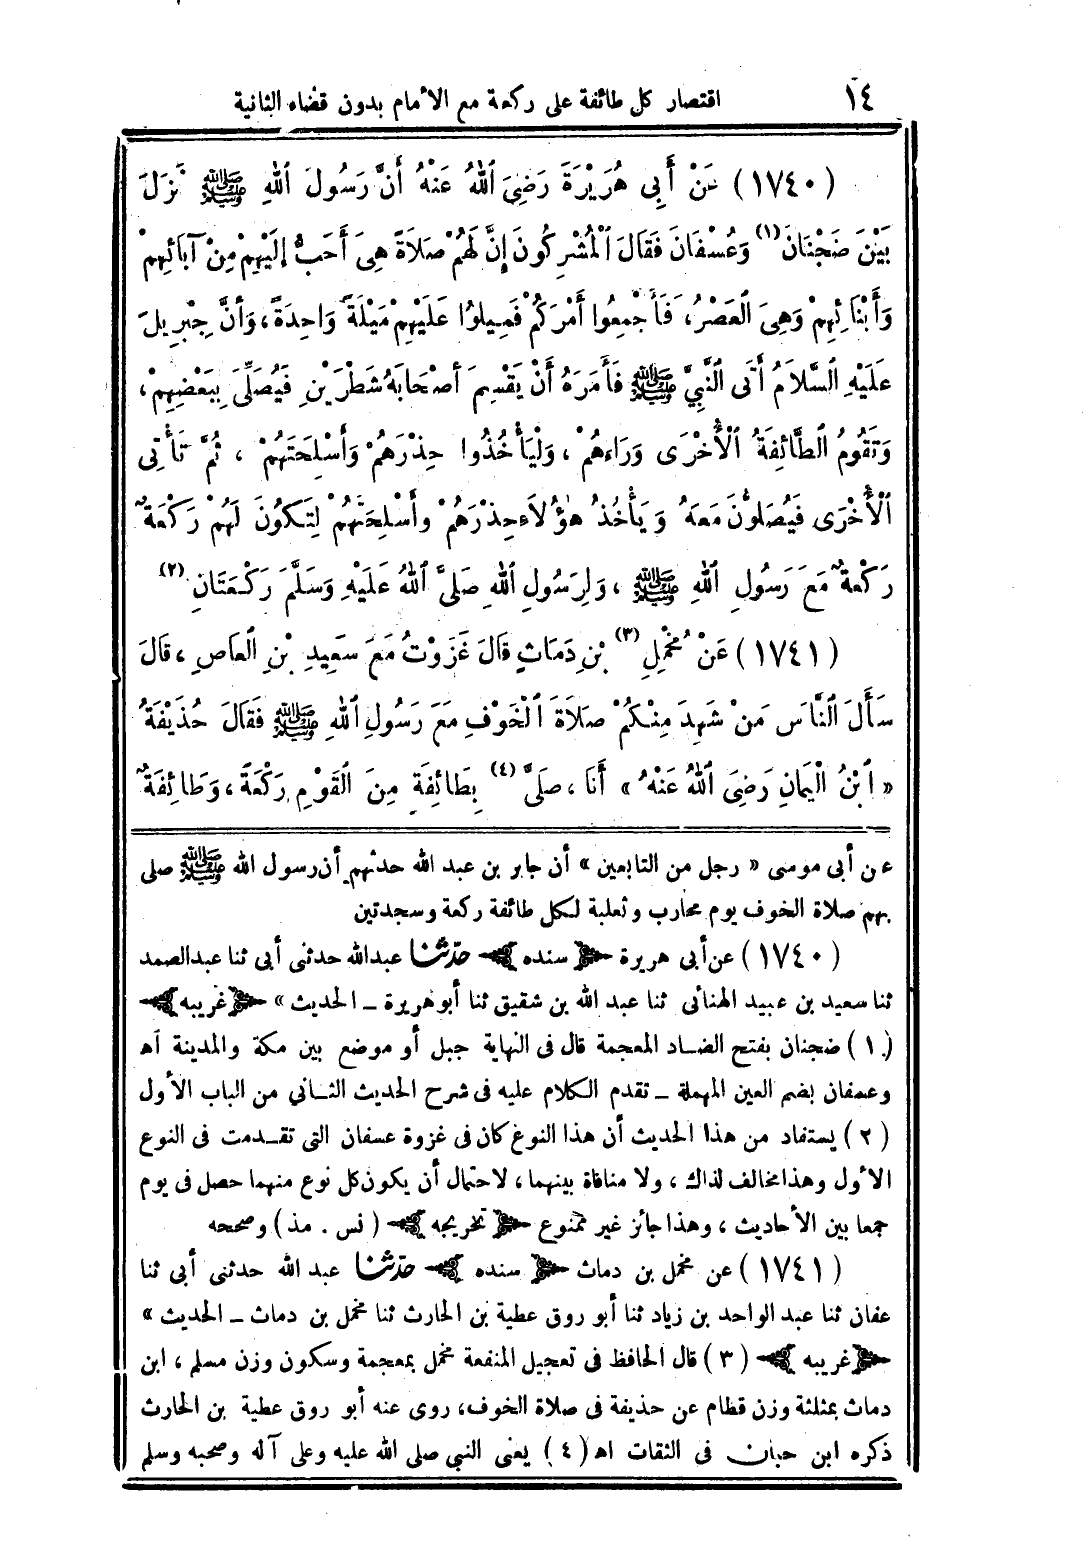 ١٤ اقتصار كل طائفة على ركعة مع الأمام بدون قضاء الثانية
(١٧٤٠) عَنْ أَبِى هُرَيْرَةَ رَضِىَ ٱللهُ عَنْهُ أَنَّ رَسُولَ ٱللهِ ﷺ نَزَلَ
بَيْنَ ضَجْنَانَ (١) وَعُسْفَانَ فَقَالَ ٱلْمُشْرِكُونَ إِنَّ لَهُمْ صَلَاةً هِىَ أَحَبُّ إِلَيْهِمْ مِنْ آبَائِهِمْ
وَأَبْنَائِهِمْ وَهِىَ ٱلعَصْرُ، فَأَجْمِعُوا أَمْرَكُمْ فَمِيلُوا عَلَيْهِمْ مَيْلَةً وَاحِدَةً، وَأَنَّ جِبْرِيلَ
عَلَيْهِ ٱلسَّلَامُ أَتَى ٱلنَّبِيَّ ﷺ فَأَمَرَهُ أَنْ يَقْسِمَ أَصْحَابَهُ شَطْرَيْنِ فَيُصَلِّىَ بِبَعْضِهِمْ،
وَتَقُومُ ٱلطَّائِفَةُ ٱلْأُخْرَى وَرَاءَهُمْ، وَلْيَأْخُذُوا حِذْرَهُمْ وَأَسْلِحَتَهُمْ، ثُمَّ تَأْتِى
ٱلْأُخْرَى فَيُصَلُّونَ مَعَهُ وَيَأْخُذُ هؤُلَاءِ حِذْرَهُمْ وأَسْلِحَتَهُمْ لِتَكُونَ لَهُمْ رَكْعَةٌ
رَكْعَةٌ مَعَ رَسُولِ ٱللهِ ﷺ، وَلِرَسُولِ ٱللهِ صَلَّى ٱللهُ عَلَيْهِ وَسَلَّمَ رَكْعَتَانِ (٢)
(١٧٤١) عَنْ مُخْمِلِ (٣) بْنِ دَمَاثٍ قَالَ غَزَوْتُ مَعَ سَعِيدِ بْنِ ٱلعَاصِ، قَالَ
سَأَلَ ٱلنَّاسَ مَنْ شَهِدَ مِنْكُمْ صَلَاةَ ٱلْخَوْفِ مَعَ رَسُولِ ٱللهِ ﷺ فَقَالَ حُذَيْفَةُ
« ٱبْنُ ٱلْيَمَانِ رَضِىَ ٱللهُ عَنْهُ » أَنَا، صَلَّى (٤) بِطَائِفَةٍ مِنَ ٱلقَوْمِ رَكْعَةً، وَطَائِفَةٌ
عن أبى موسى « رجل من التابعين » أن جابر بن عبد الله حدثهم أن رسول الله ﷺ صلى
بهم صلاة الخوف يوم محارب وثعلبة لكل طائفة ركعة وسجدتين
(١٧٤٠) عن أبى هريرة ﴿سنده﴾ حدّثنا عبد الله حدثنى أبى ثنا عبد الصمد
ثنا سعيد بن عبيد الهنائى ثنا عبد الله بن شقيق ثنا أبو هريرة ـ الحديث » ﴿غريبه﴾
(١) ضجنان بفتح الضاد المعجمة قال فى النهاية جبل أو موضع بين مكة والمدينة اه
وعسفان بضم العين المهملة ـ تقدم الكلام عليه فى شرح الحديث الثانى من الباب الأول
(٢) يستفاد من هذا الحديث أن هذا النوع كان فى غزوة عسفان التى تقدمت فى النوع
الأول وهذا مخالف لذاك، ولا منافاة بينهما، لاحتمال أن يكون كل نوع منهما حصل فى يوم
جمعا بين الأحاديث، وهذا جائز غير ممنوع ﴿تخريجه﴾ (نس . مذ) وصححه
(١٧٤١) عن مخمل بن دماث ﴿سنده﴾ حدّثنا عبد الله حدثنى أبى ثنا
عفان ثنا عبد الواحد بن زياد ثنا أبو روق عطية بن الحارث ثنا مخمل بن دماث ـ الحديث »
﴿غريبه﴾ (٣) قال الحافظ فى تعجيل المنفعة مخمل بمعجمة وسكون وزن مسلم، ابن
دماث بمثلثة وزن قطام عن حذيفة فى صلاة الخوف، روى عنه أبو روق عطية بن الحارث
ذكره ابن حبان فى الثقات اه (٤) يعنى النبي صلى الله عليه وعلى آله وصحبه وسلم